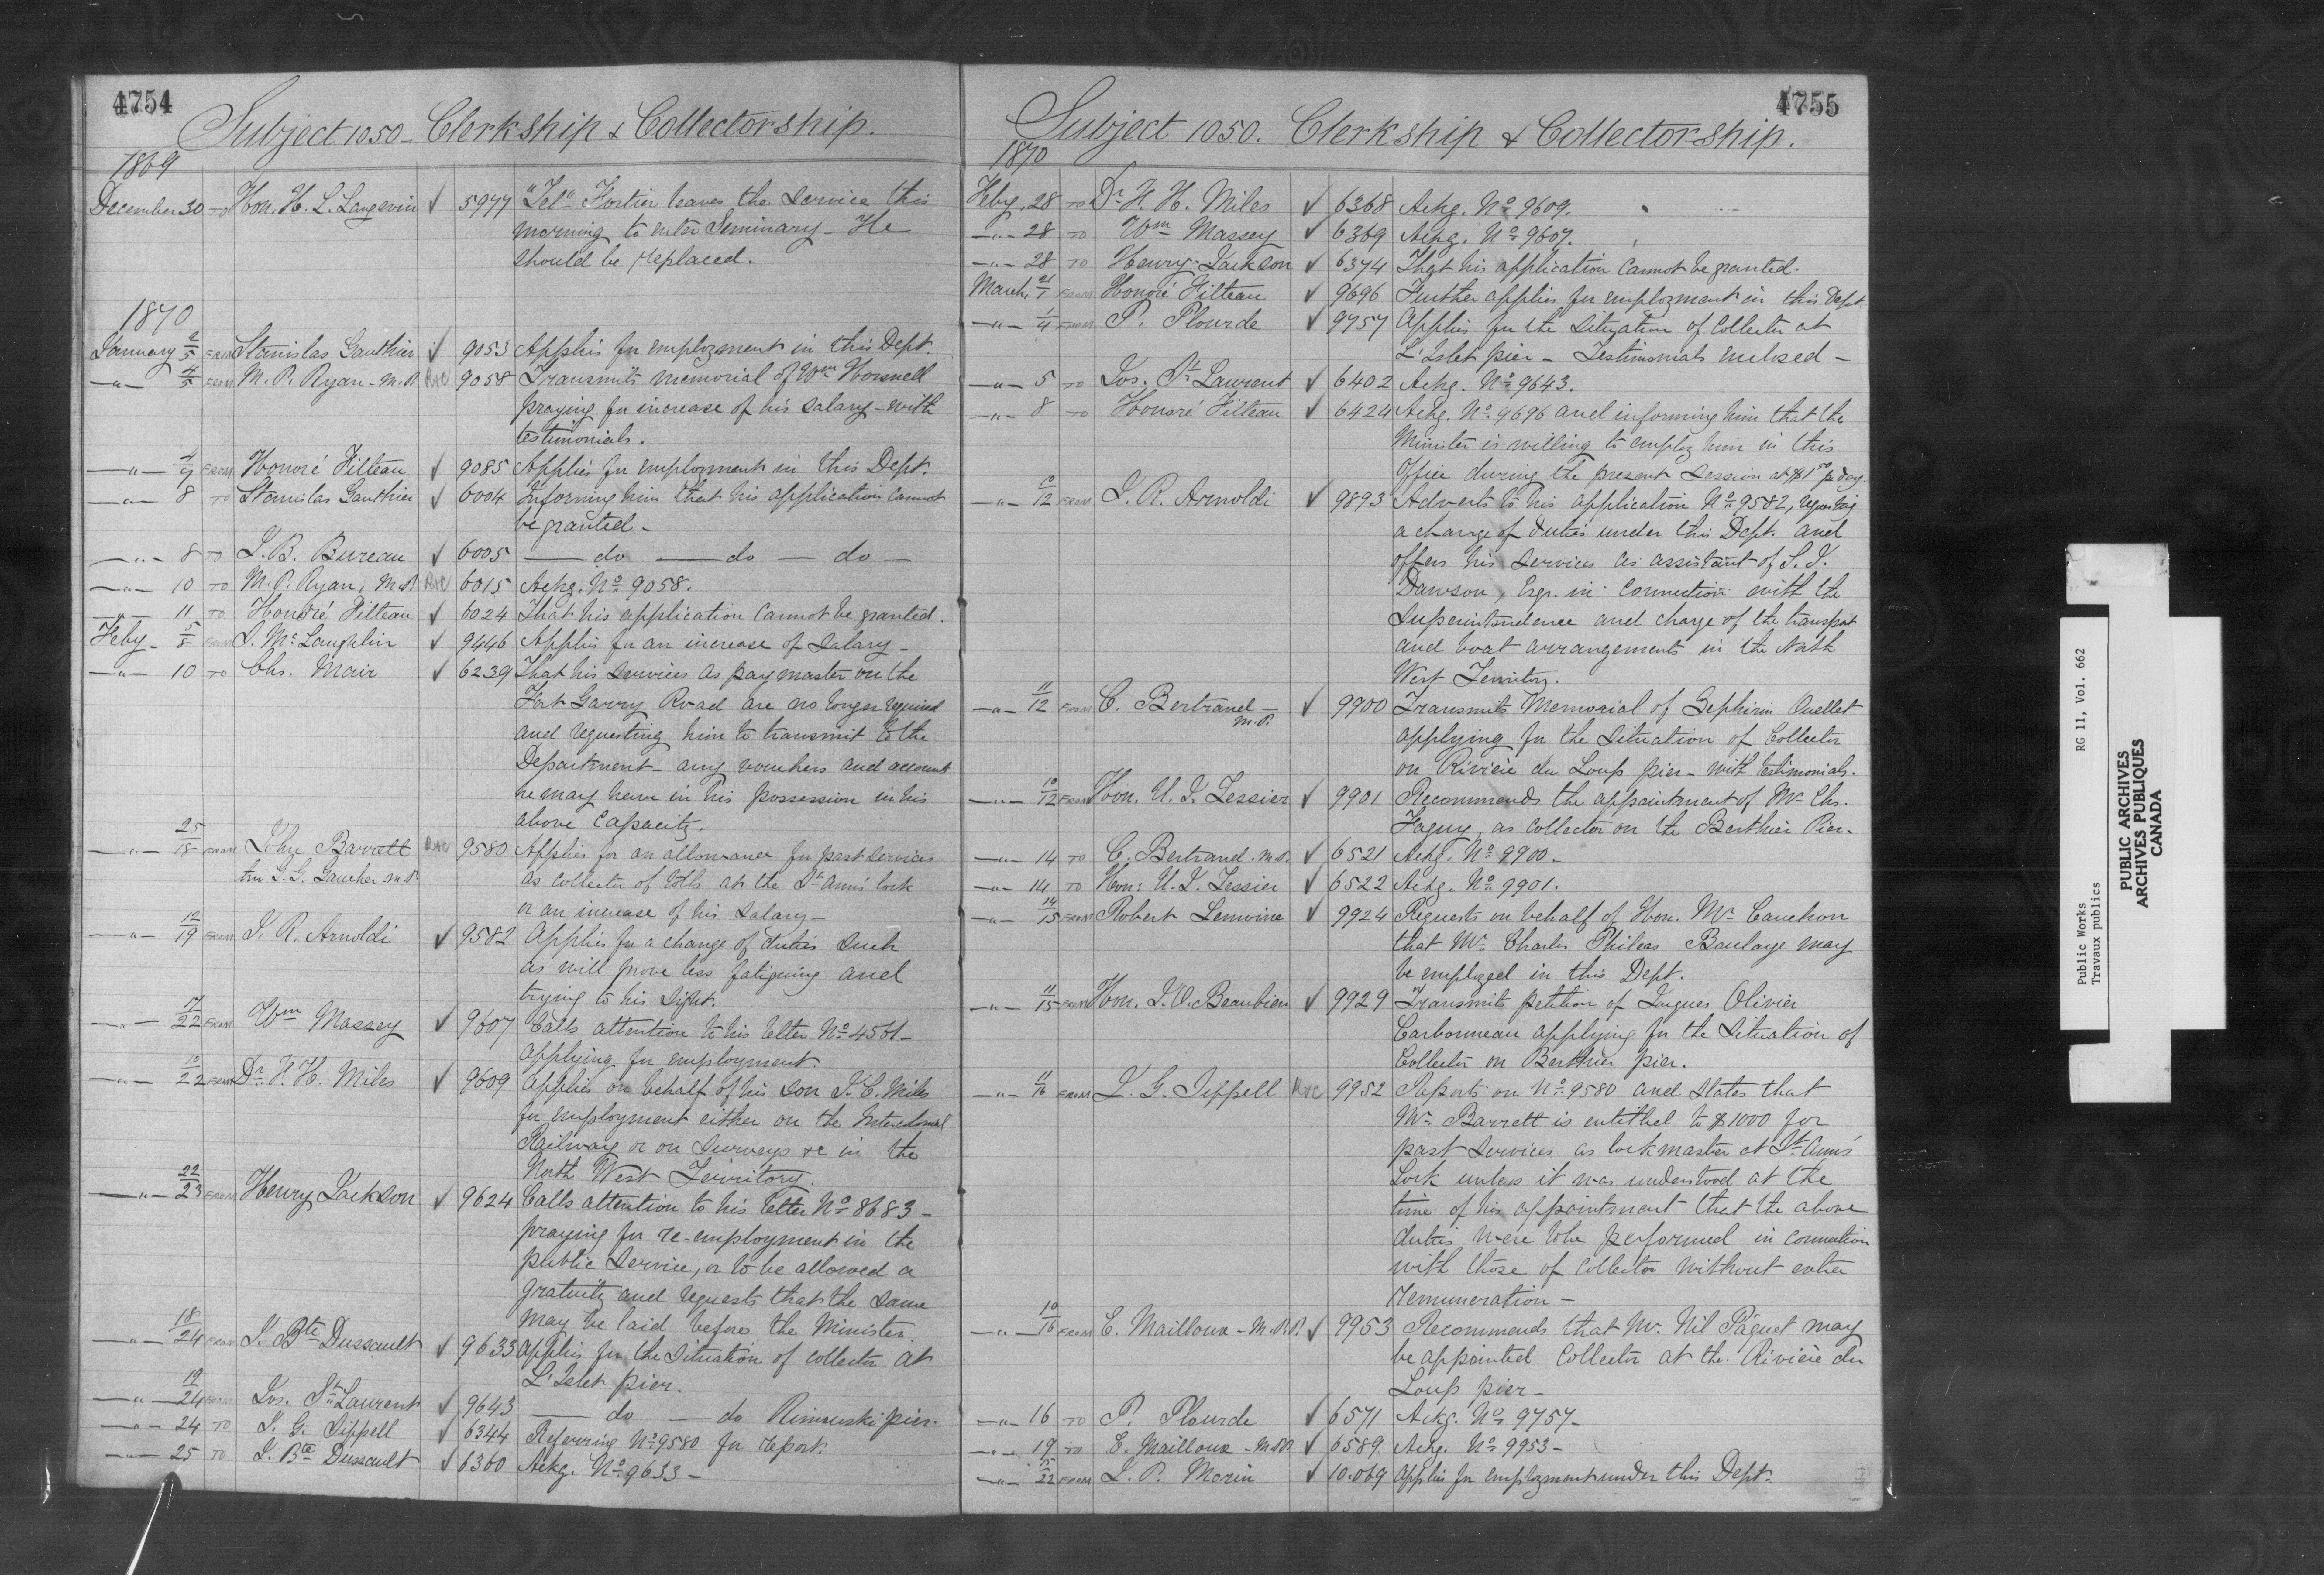 4754
Subject 1050 - Clerkship & Collectorship.
1869
December 30 TO Hon. H. L. Langevin ✓ 5977 "Tel" Fortier leaves the Service this
morning to enter Seminary - He
should be replaced.
1870
January 2/5 FROM Stanislas Gauthier ✓ 9053 Applies for employment in this Dept.
—"— 4/5 FROM M. P. Ryan - M.P. 9058 Transmits memorial of Wm
praying for increase of his salary - with
testimonials.
—"— 4/7 FROM Honoré Filteau ✓ 9085 Applies for employment in this Dept.
—"— 8 TO Stanislas Gauthier ✓ 6004 Informing him that his application cannot
be granted -
—"— 8 TO J. B. Bureau ✓ 6005 — do — do — do —
—"— 10 TO M. P. Ryan, M.P. 6015 Ackg. No 9058.
—"— 11 TO Honoré Filteau ✓ 6024 That his application cannot be granted.
Feby - 5/8 FROM S. McLaughlin ✓ 9446 Applies for an increase of Salary -
—"— 10 TO Chs. Mair ✓ 6239 That his services as paymaster on the
Fort Garry Road are no longer required
and requesting him to transmit to the
Department - any vouchers and accounts
he may have in his possession in his
above Capacity.
—"— 25/18 FROM John Barrett 9580 Applies for an allowance for past services
G. Gaucher M.P. as collector of tolls at the St. Ann's lock
or an increase of his salary -
—"— 12/19 FROM J. R. Arnoldi ✓ 9582 Applies for a change of duties such
as will prove less fatiguing and
trying to his sight.
—"— 17/22 FROM Wm Massey ✓ 9607 Calls attention to his letter No 4561 -
applying for employment.
—"— 10/22 FROM Dr H. H. Miles ✓ 9609 applies on behalf of his son J. C. Miles
for employment either on the Intercolonial
Railway or on Surveys &c in the
North West Territory.
—"— 22/23 FROM Henry Jackson ✓ 9624 Calls attention to his letter No 8683 -
praying for re-employment in the
public Service, or to be allowed a
gratuity and requests that the same
may be laid before the Minister.
—"— 18/24 FROM J. Bte Dussault ✓ 9633 applies for the situation of collector at
L'Islet pier.
—"— 19/24 FROM Jos. St Laurent ✓ 9643 — do — do Rimouski pier.
—"— 24 TO J. G. Sippell ✓ 6344 Referring No 9580 for report.
—"— 25 TO J. Bte Dussault ✓ 6360 Ackg. No 9633 -
4755
Subject 1050. Clerkship & Collectorship.
1870
Feby. 28 TO Dr H. H. Miles ✓ 6368 Ackg. No 9609.
—"— 28 TO Wm Massey ✓ 6369 Ackg. No 9607.
—"— 28 TO Henry Jackson ✓ 6374 That his application cannot be granted.
March, FROM Honoré Filteau ✓ 9696 Further applies for employment in this Dept.
—"— 1/4 FROM P. Plourde ✓ 9757 Applies for the situation of Collector at
L'Islet pier - Testimonials enclosed -
—"— 5 TO Jos. St Laurent ✓ 6402 Ackg. No 9643.
—"— 8 TO Honoré Filteau ✓ 6424 Ackg. No 9696 and informing him that the
Minister is willing to employ him in this
Office during the present Session at $1 50 pr day.
—"— 10/12 FROM J. R. Arnoldi ✓ 9893 Adverts to his application No 9582, requesting
a change of duties under this Dept. and
offers his services as assistant of S. J.
Dawson, Esqr. in connection with the
Superintendence and charge of the transport
and boat arrangements in the North
West Territory.
—"— 11/12 FROM C. Bertrand - M.P. ✓ 9900 Transmits Memorial of Zephirin Ouellet
applying for the situation of Collector
on Rivière du Loup pier - with testimonials.
—"— 10/12 FROM Hon. U. J. Tessier ✓ 9901 Recommends the appointment of Mr Chs.
Faguy, as Collector on the Berthier Pier.
—"— 14 TO C. Bertrand. M.P. ✓ 6521 Ackg. No 9900 -
—"— 14 TO Hon: U. J. Tessier ✓ 6522 Ackg. No 9901.
—"— 14/15 FROM Robert Lemoine ✓ 9924 Requests on behalf of Hon. Mr Cauchon
that Mr Charles Phileas Baulage may
be employed in this Dept.
—"— 11/15 FROM Hon. J. O. Beaubien ✓ 9929 Transmits petition of Jacques Olivier
Carbonneau applying for the situation of
Collector on Berthier pier.
—"— 11/16 FROM J. G. Sippell 9952 Reports on No 9580 and states that
Mr Barrett is entitled to $1000 for
past services as lockmaster at St Ann's
Lock unless it was understood at the
time of his appointment that the above
duties were to be performed in connection
with those of Collector without extra
remuneration -
—"— 10/16 FROM E. Mailloux - M.P.P. ✓ 9953 Recommends that Mr. Nil Paquet may
be appointed Collector at the Rivière du
Loup pier -
—"— 16 TO P. Plourde ✓ 6571 Ackg. No 9757 -
—"— 19 TO E. Mailloux - M.P.P. ✓ 6589 Ackg. No 9953 -
—"— 22 FROM L. P. Morin ✓ 10.069 applies for employment under this Dept.
Public Works RG 11, Vol. 662
Travaux publics
PUBLIC ARCHIVES
ARCHIVES PUBLIQUES
CANADA